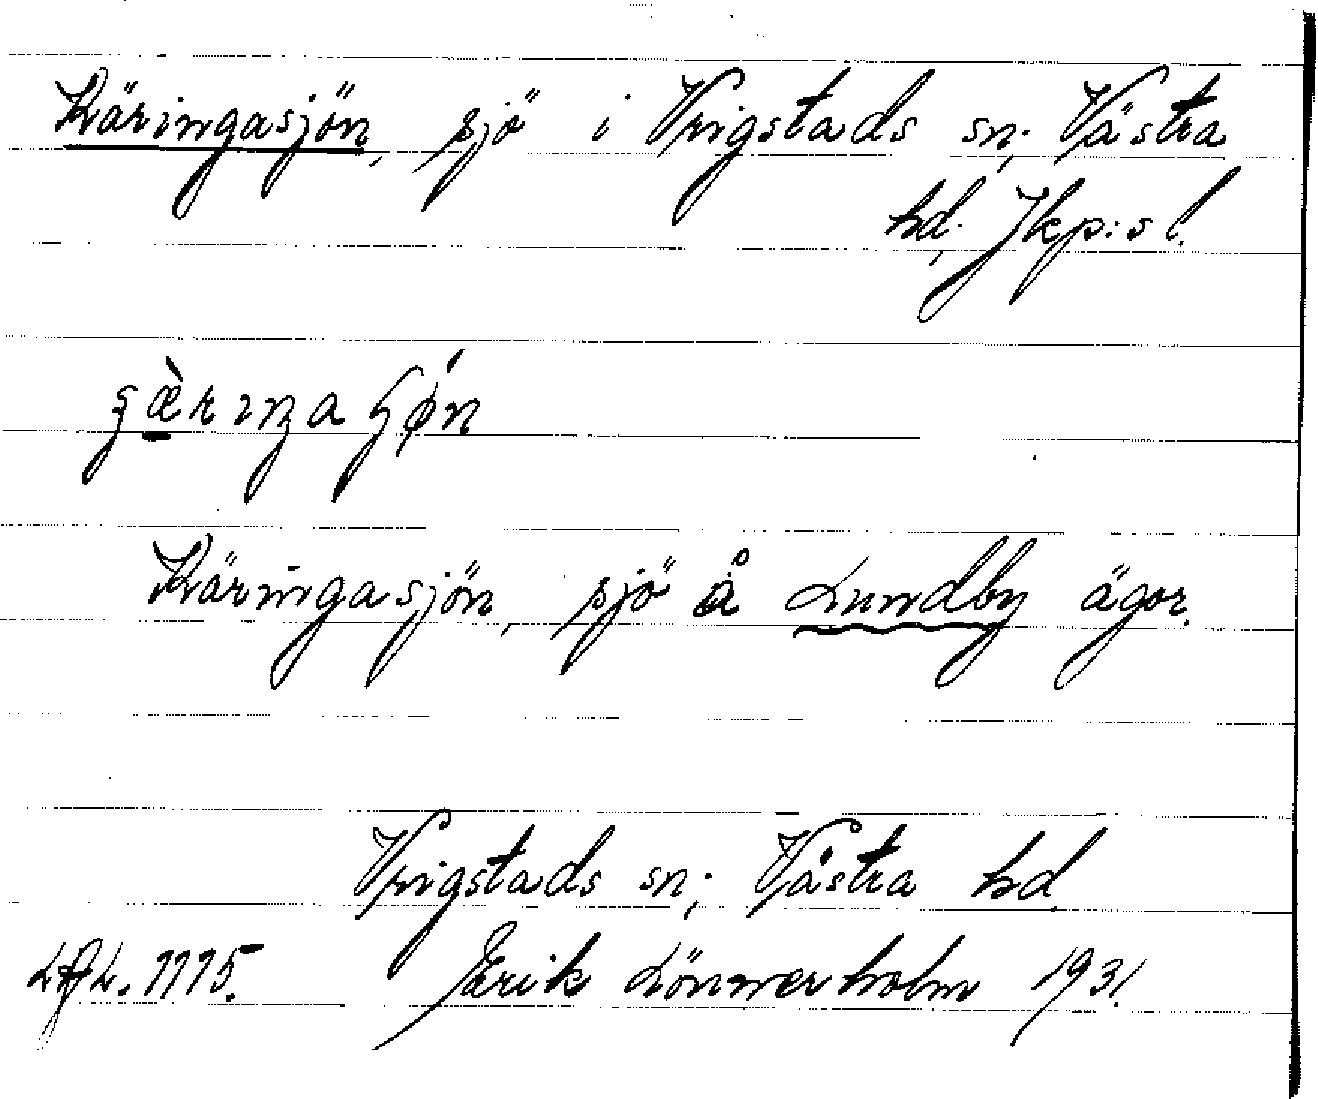 Käringasjön, sjö i Vrigstads sn; Västra
hd. Jkp:s l.
Käringasjön, sjö å Lundby ägor.
Vrigstads sn; Västra hd.
1115.
Erik Lönnerholm 1931.